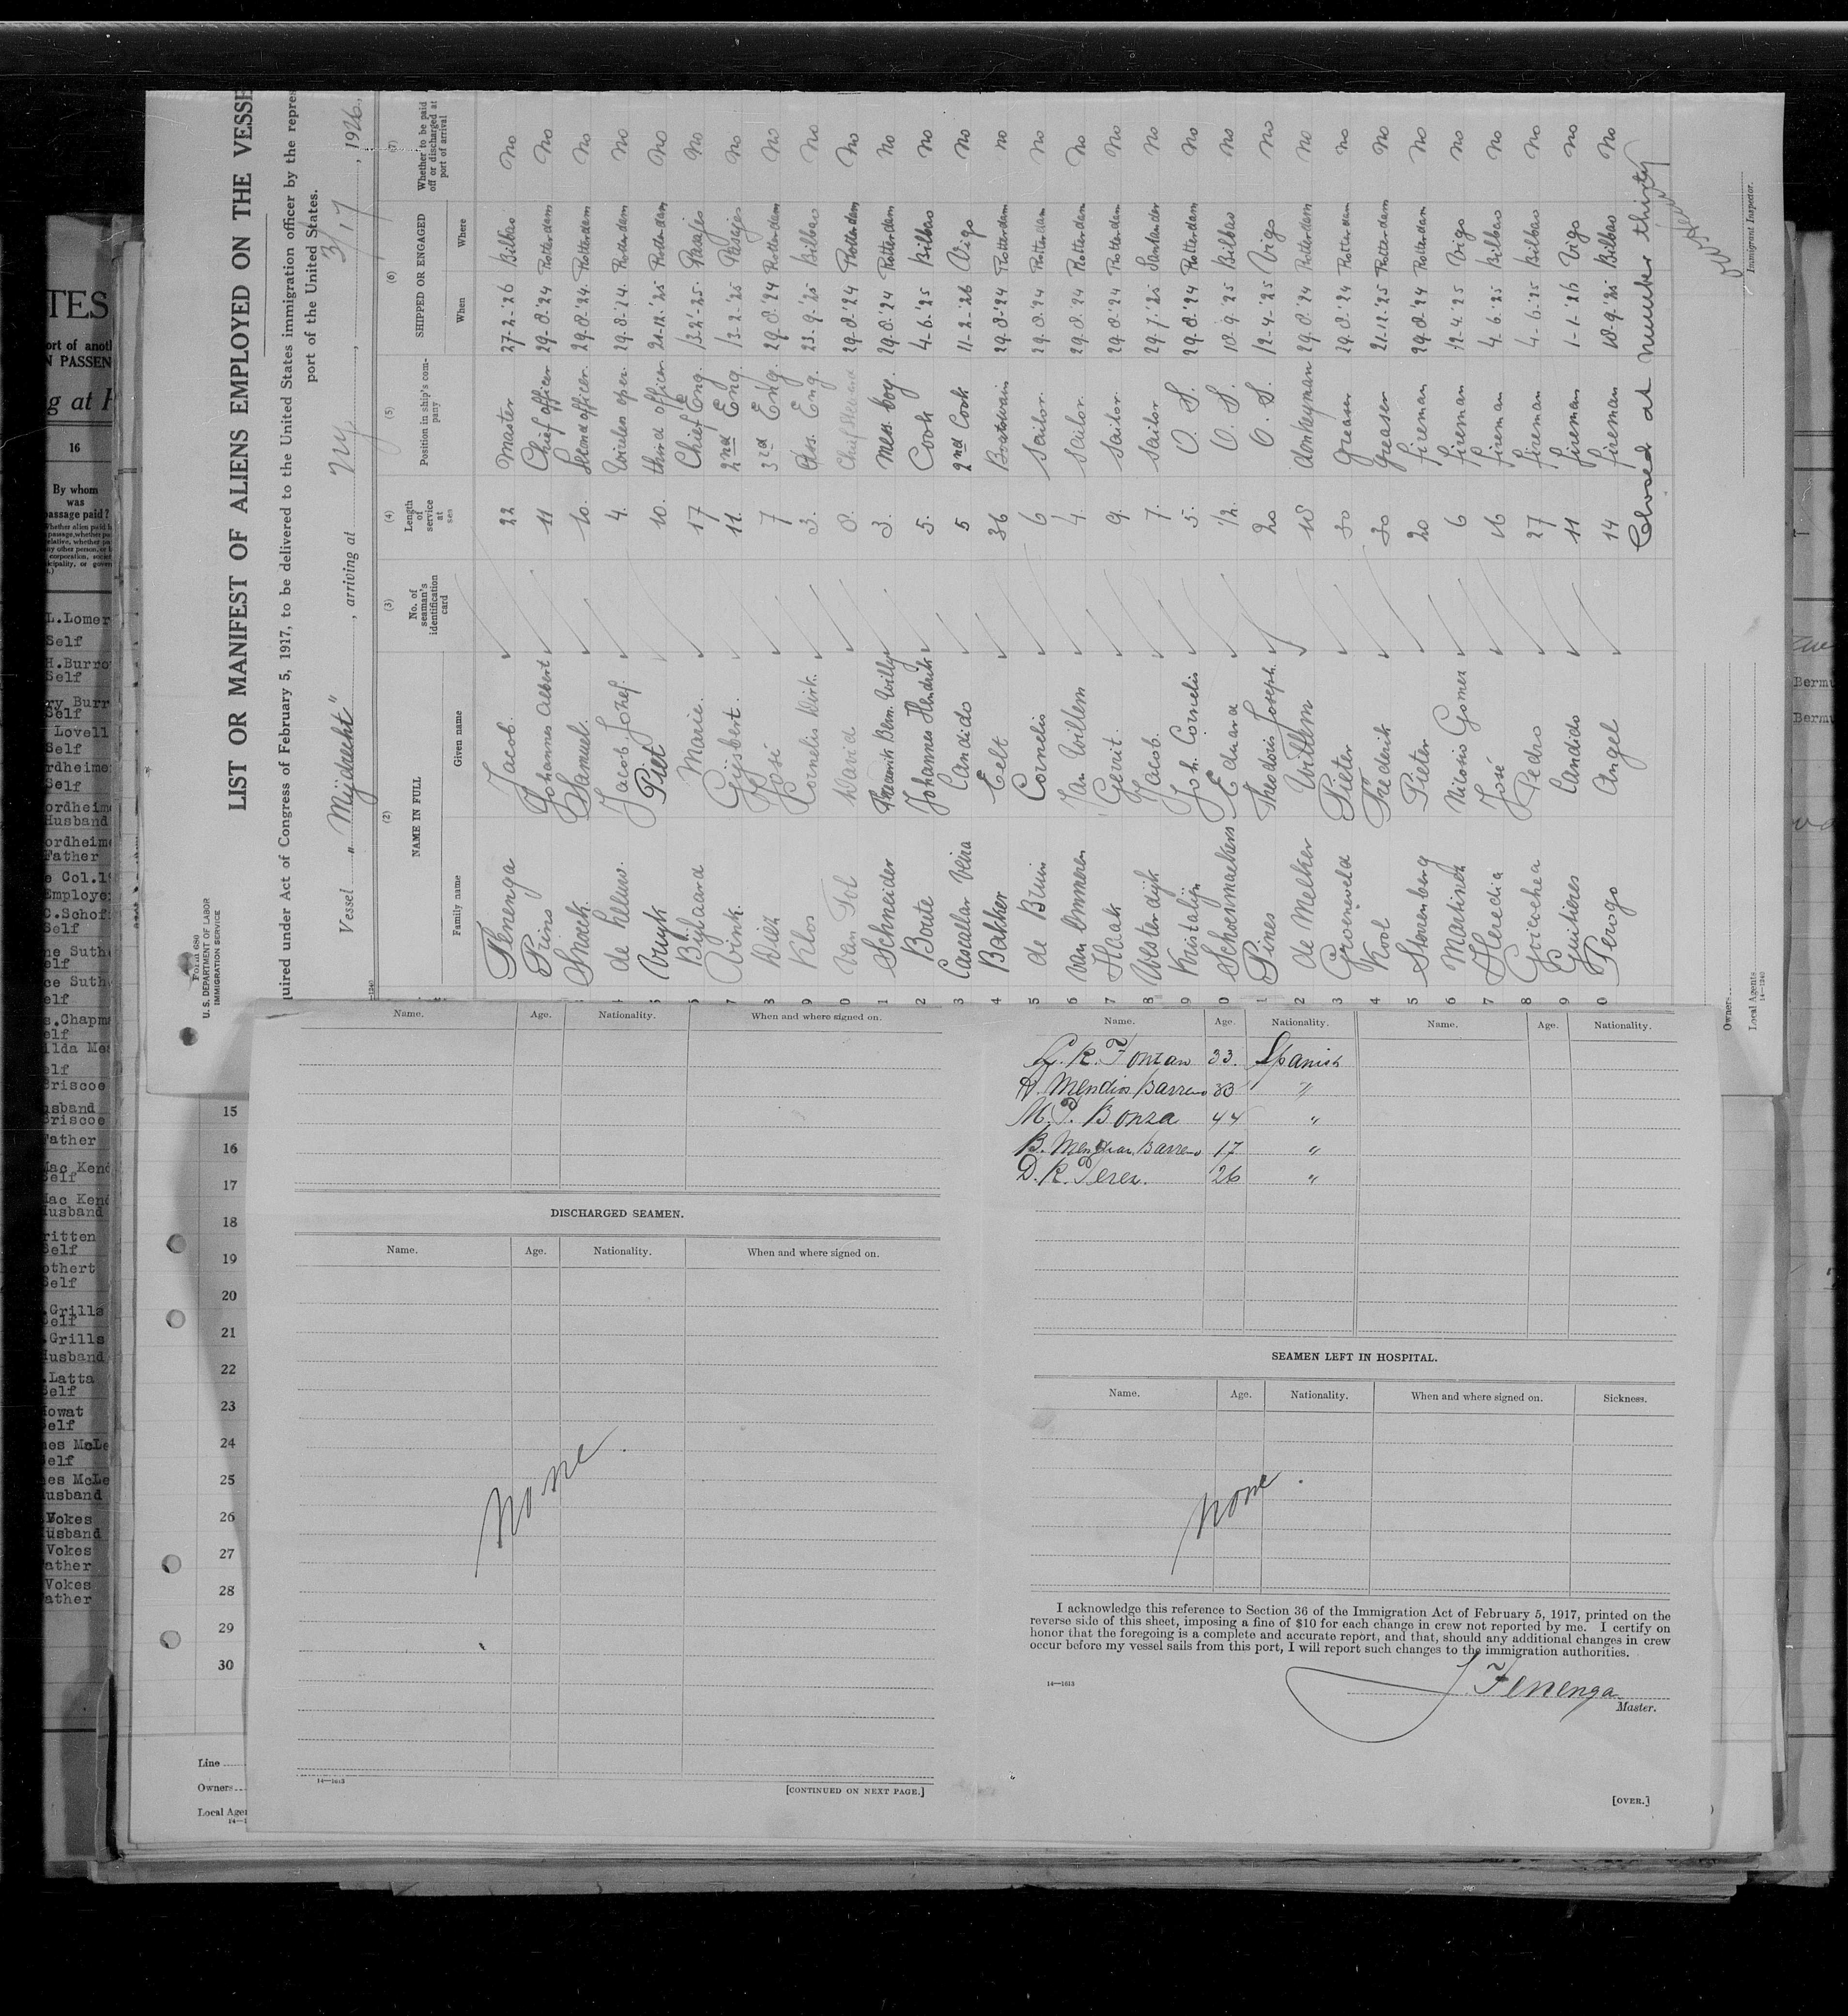 Form 680
U. S. DEPARTMENT OF LABOR
IMMIGRATION SERVICE
LIST OR MANIFEST OF ALIENS EMPLOYED ON THE VESSE
quired under Act of Congress of February 5, 1917, to be delivered to the United States immigration officer by the repres
port of the United States.
Vessel "Mijdrecht", arriving at N.Y., 3/17, 1926,
(2) (3) (4) (5) (6) (7)
NAME IN FULL No. of seaman's identification card Length of service at sea Position in ship's company SHIPPED OR ENGAGED Whether to be paid off or discharged at port of arrival
Family name Given name When Where
Fenenga Jacob. 22 Master 27-2-'26 Bilbao No
Prins Johannes Albert 11 Chief officer 29-8-'24 Rotterdam No
Snoeck Samuel. 10. Second officer. 29-8-'24. Rotterdam No
de Leeuw. Jacob Jozef. 4. Wireless oper. 29-8-'24. Rotterdam No
Vruyk Piet 10. third officer. 21-12-'25 Rotterdam No
Bijlaard Marie. 17 Chief Eng. 13-2-'25. Pasajes No
Vink. Gijsbert. 11. 2nd Eng. 13-2-'25 Pasajes No
Diez José 7 3rd Eng. 29-8-'24 Rotterdam No
Klos Cornelis Dirk. 3. Ass. Eng. 23-9-'25 Bilbao No
van Tol David 8. Chief Steward 29-8-'24 Rotterdam No
1 Schneider Frederik Bern. Willy 3. Mess boy. 29-8-'24 Rotterdam No
2 Boute Johannes Hendrik 5. Cook 4-6-'25 Bilbao No
3 Cascallar Veira Candido 5 2nd Cook 11-2-'26 Vigo No
4 Bakker Eelt 36 Boatswain 29-8-'24 Rotterdam no
5 de Bruin Cornelis 6 Sailor. 29-8-'24 Rotterdam No
6 van Ommeren Jan Willem 4. Sailor. 29-8-'24 Rotterdam No
7 Haak Gerrit. 9. Sailor. 29-8-'24 Rotterdam No
8 Westerdijk Jacob. 7. Sailor 29-7-'25 Santander No
9 Kristalijn Joh. Cornelis 5. O. S. 29-8-'24 Rotterdam No
0 Schoenmaekers Eduard 1/2. O. S. 18-9-'25 Bilbao No
1 Pines Theodosis Joseph. 20 O. S. 12-4-'25 Vigo No
2 de Melker Willem 18 donkeyman 29-8-'24 Rotterdam No
3 Groeneveld Pieter 30 Greaser 29-8-'24 Rotterdam No
4 Kool Frederik 30 Greaser 21-12-'25 Rotterdam No
5 Sterrenberg Pieter 20 fireman 29-8-'24 Rotterdam No
6 Martinez Gomez 6 fireman 12-4-'25 Vigo No
7 Heredia José 16 fireman 4-6-'25 Bilbao No
8 Goicochea Pedro 27 fireman 4-6-'25 Bilbao No
9 Guitieres Candido 11 fireman 1-1-'26 Vigo No
0 Perogo Angel 14 fireman 18-9-'25 Bilbao No
Closed at number thirty
Immigrant Inspector.
Owners
Local Agents
14—1240
Name. Age. Nationality. When and where signed on.
DISCHARGED SEAMEN.
Name. Age. Nationality. When and where signed on.
None.
14—1613
[CONTINUED ON NEXT PAGE.]
Name. Age. Nationality. Name. Age. Nationality.
R. Fontan 33. Spanish
Barreno 33 "
M. P. Bonza 44 "
B. Barreno 17 "
D. R. Perez. 26 "
SEAMEN LEFT IN HOSPITAL.
Name. Age. Nationality. When and where signed on. Sickness.
None.
I acknowledge this reference to Section 36 of the Immigration Act of February 5, 1917, printed on the
reverse side of this sheet, imposing a fine of $10 for each change in crew not reported by me. I certify on
honor that the foregoing is a complete and accurate report, and that, should any additional changes in crew
occur before my vessel sails from this port, I will report such changes to the immigration authorities.
J Fenenga
Master.
14—1613
[OVER.]
15
16
17
18
19
20
21
22
23
24
25
26
27
28
29
30
Line
Owners
Local Agen
TES
ort of anoth
N PASSEN
g at
16
By whom
was
passage paid?
L.Lomer
Self
H.Burro
Self
ry Burr
Self
Lovell
Self
rdheime
Self
ordheime
Husband
ordheime
Father
e Col.
Employe
C.Schof
Self
ne Suthe
elf
ce Suth
elf
s.Chapm
elf
ilda Me
elf
Briscoe
usband
Briscoe
Father
Mac Kend
Self
Mac Kend
Husband
ritten
Self
othert
Self
.Grills
Self
.Grills
Husband
.Latta
Self
Mowat
Self
mes McLe
Self
mes McLe
Husband
Vokes
Husband
Vokes
ather
Vokes
ather
Bermu
Bermu